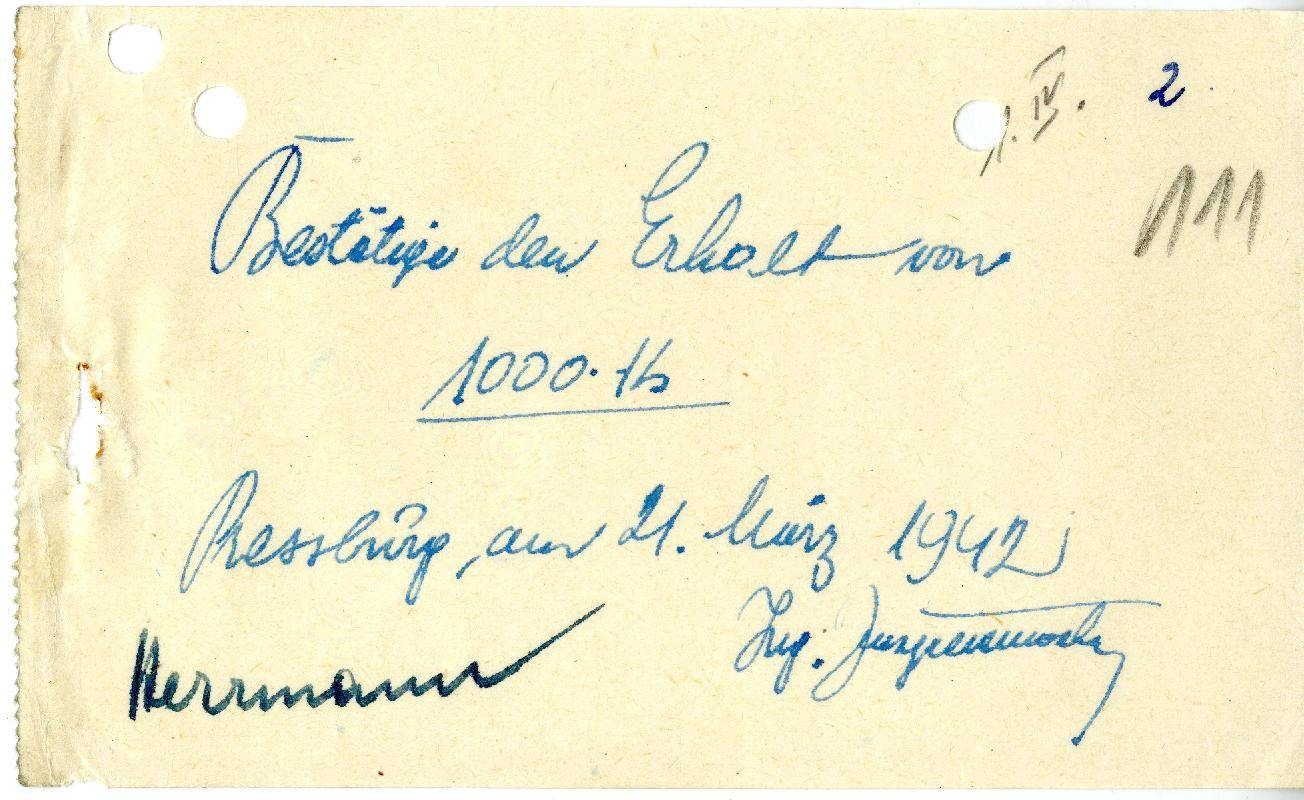 1. IV. 2.
111
Bestätige den Erhalt von
1000.- Ks
Pressburg, am 21. März 1942
Ing.
Herrmann